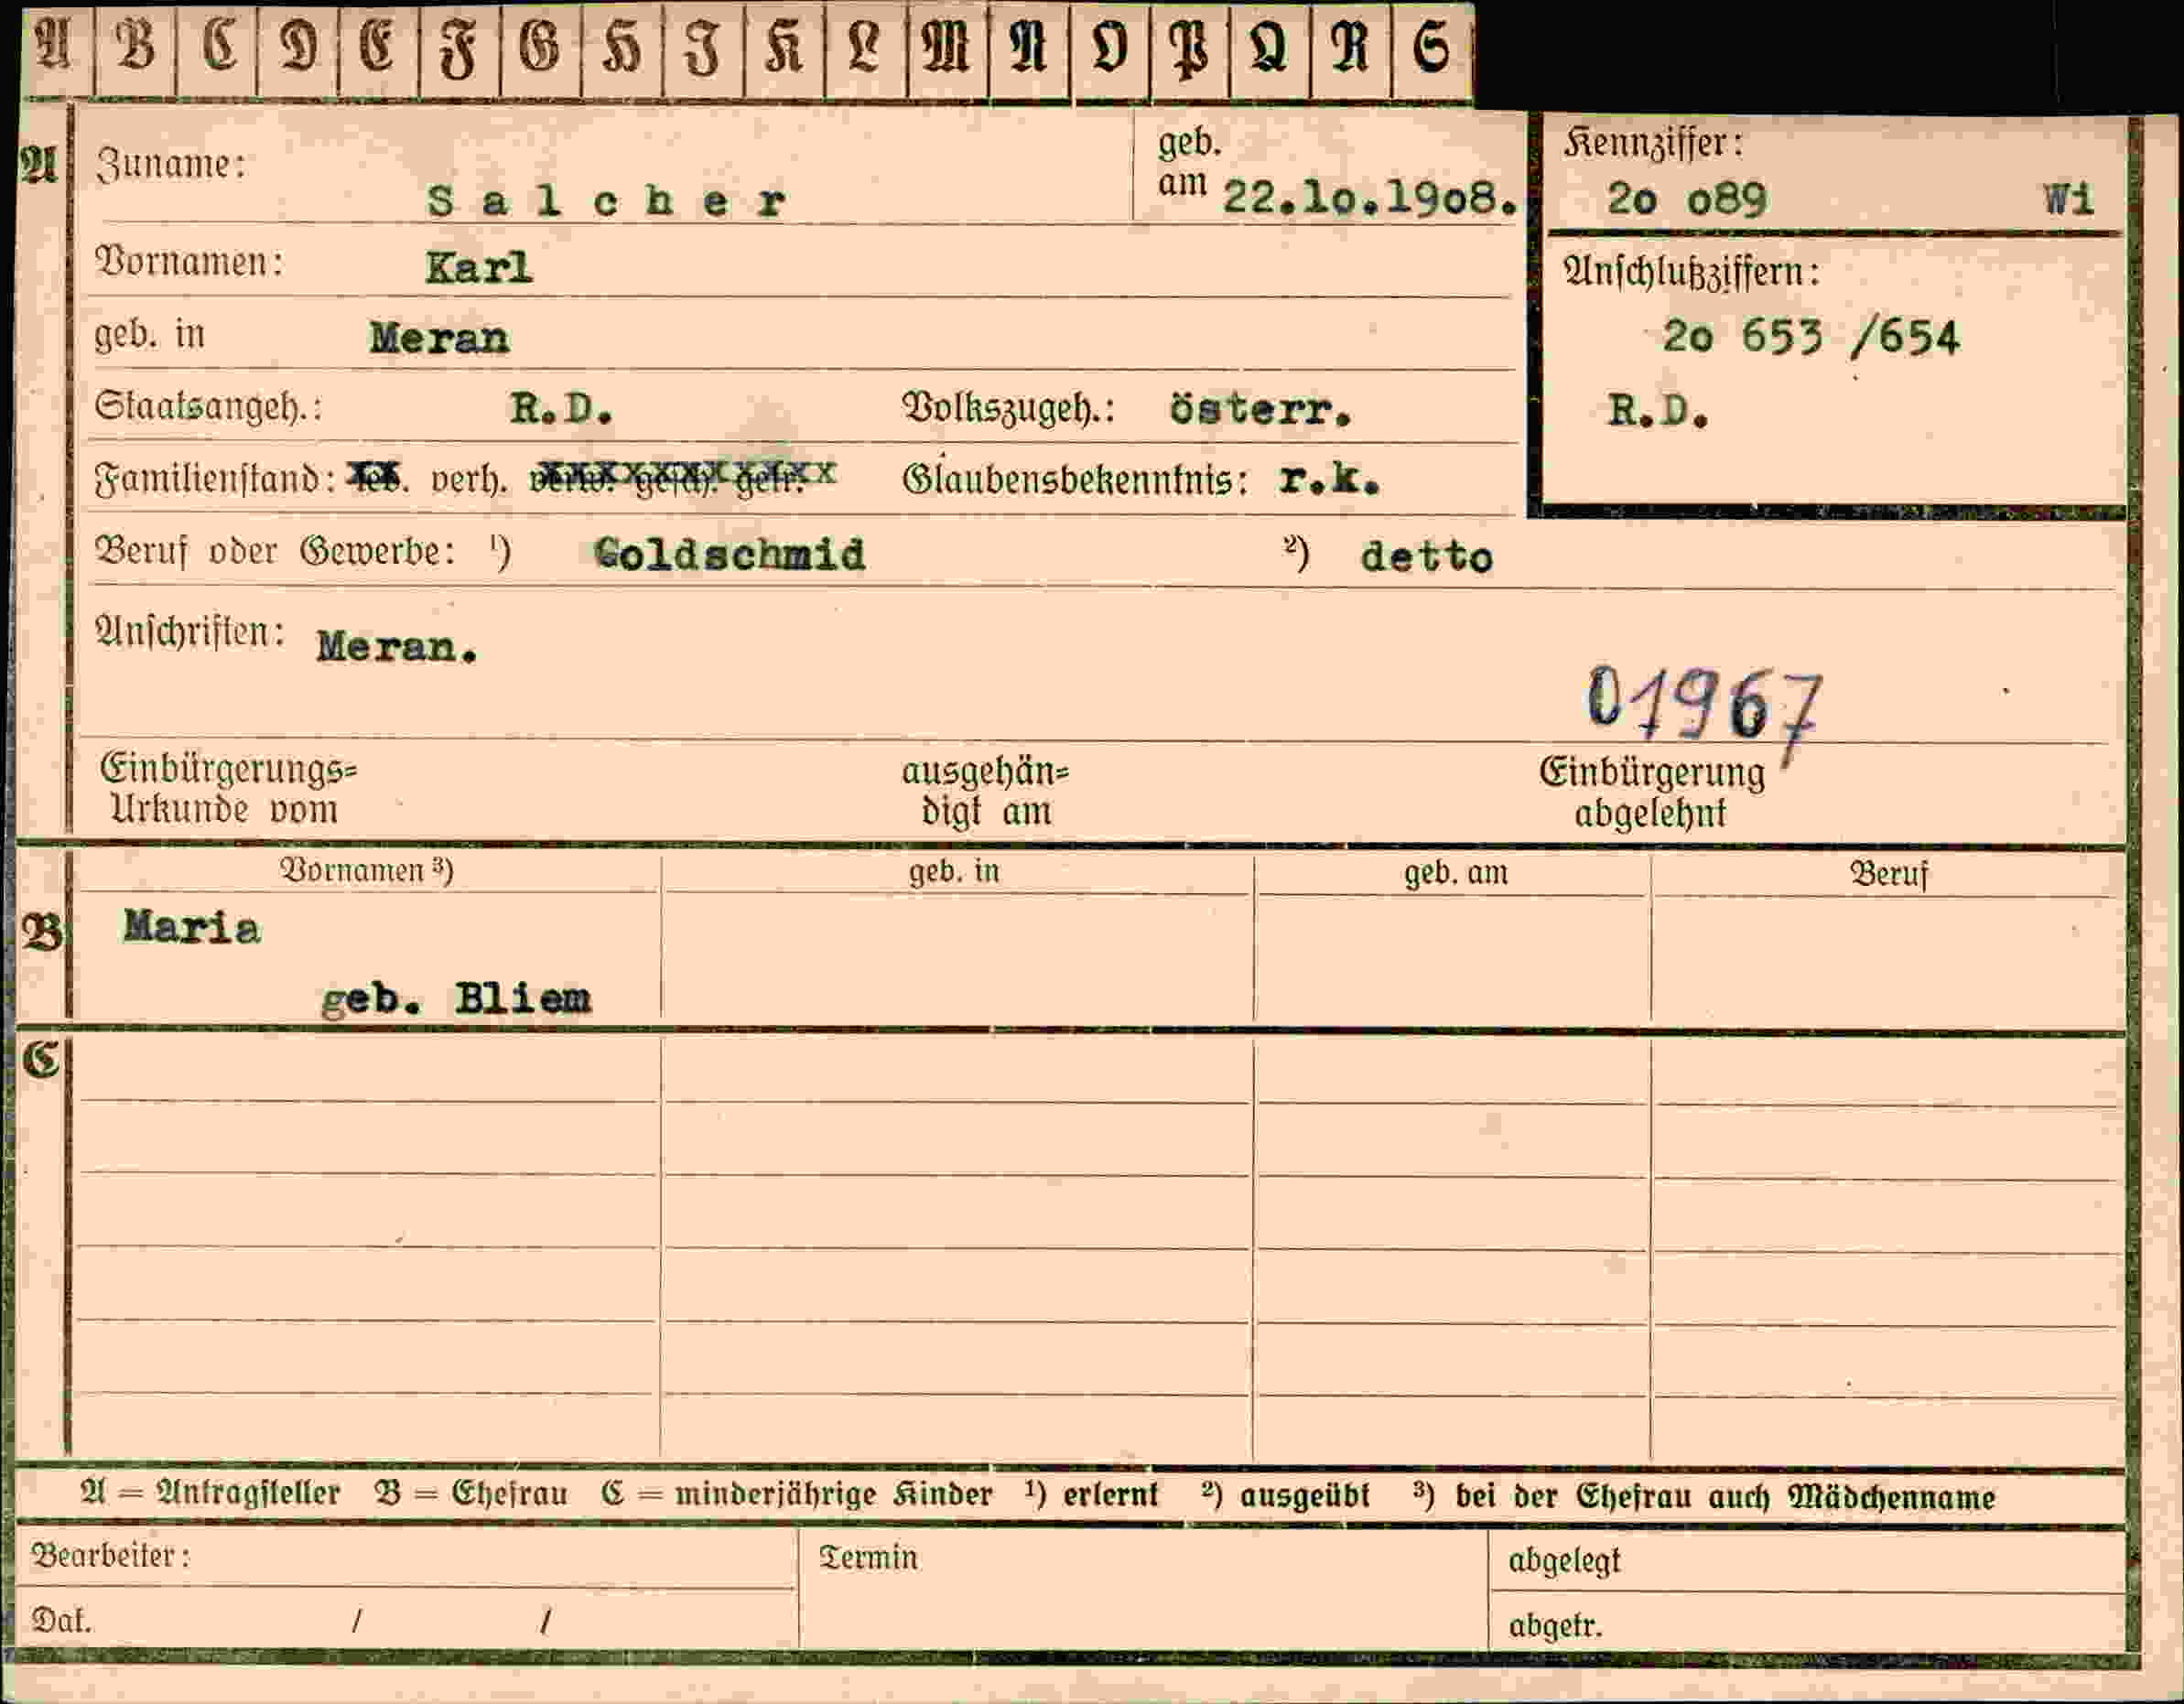 A B C D E F G H I K L M N O P Q R S
A Zuname: Salcher geb. am 22.10.1908. Kennziffer: 20 089 Wi
Vornamen: Karl Anschlußziffern:
geb. in Meran 20 653 /654
Staatsangeh.: R.D. Volkszugeh.: österr. R.D.
Familienstand: led. verh. verw. gesch. getr. Glaubensbekenntnis: r.k.
Beruf oder Gewerbe: ¹) Goldschmid ²) detto
Anschriften: Meran.
01967
Einbürgerungs= ausgehän= Einbürgerung
Urkunde vom digt am abgelehnt
Vornamen ³) geb. in geb. am Beruf
B Maria
geb. Bliem
C
A = Antragsteller B = Ehefrau C = minderjährige Kinder ¹) erlernt ²) ausgeübt ³) bei der Ehefrau auch Mädchenname
Bearbeiter: Termin abgelegt
Dat. / / abgetr.